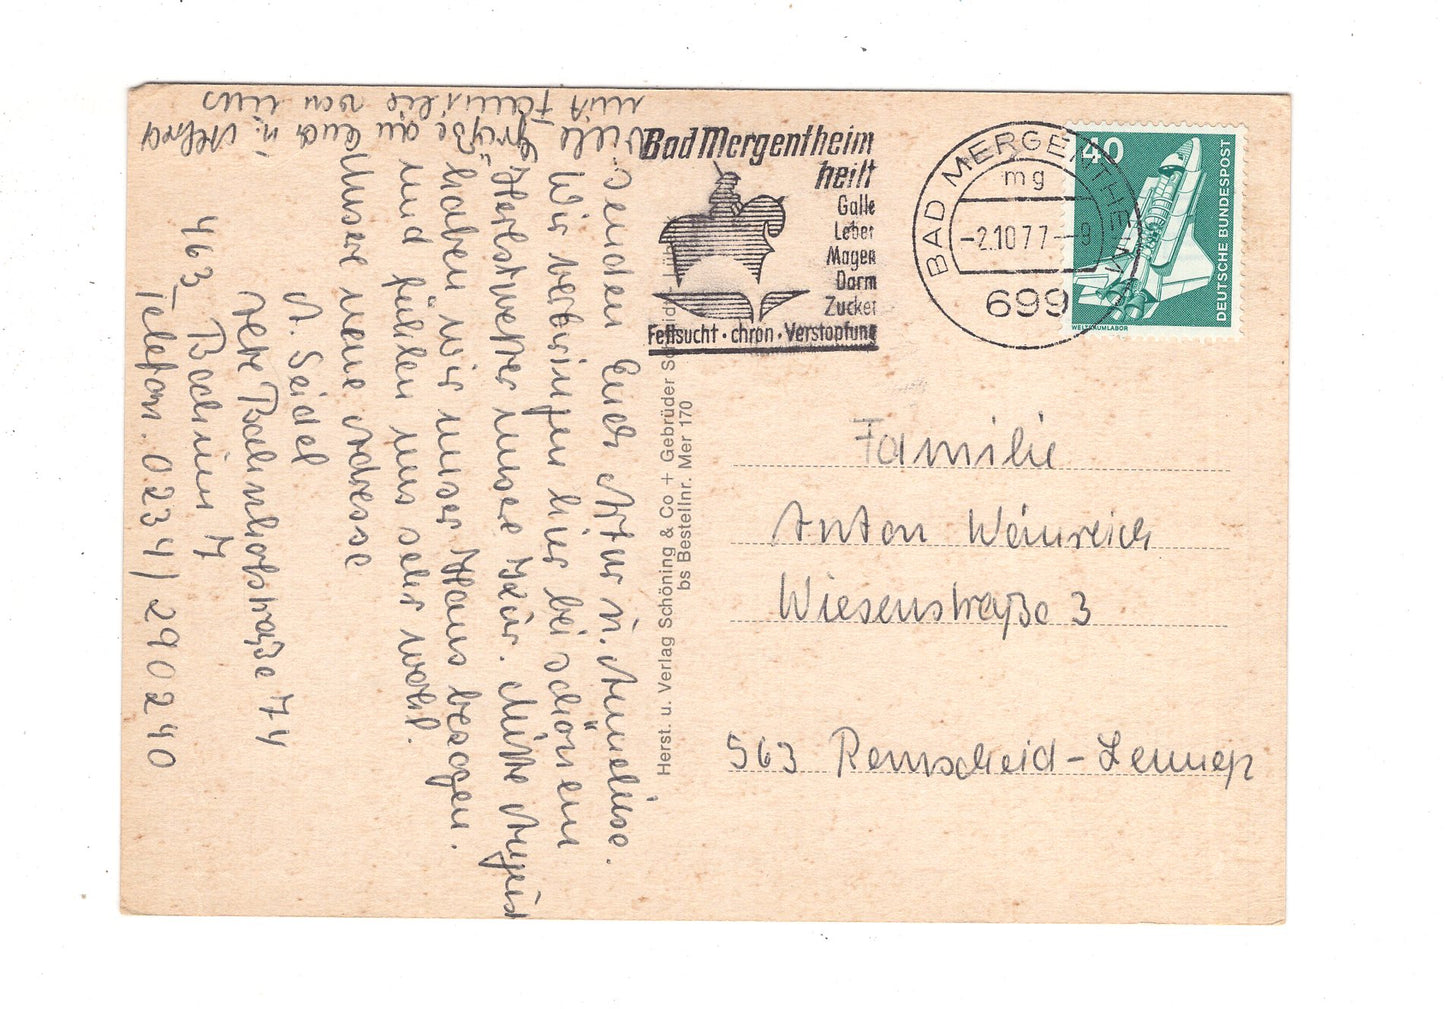 Bad Mergentheim
heilt
Galle
Leber
Magen
Darm
Zucker
Fettsucht · chron · Verstopfung
BAD MERGENTHEIM
mg
-2.10.77--9
699
40
DEUTSCHE BUNDESPOST
WELTRAUMLABOR
Viele Grüße an Euch u. Alfred
mit Familie von uns
senden Euch Artur u. Anneliese.
Wir verbringen hier bei schönem
Herbstwetter unsere Kur. Mitte August
haben wir unser Haus bezogen.
und fühlen uns sehr wohl.
Unsere neue Adresse
A. Seidel
Bahnhofstraße 74
463 Bochum 7
Telefon. 0234/290240
Herst. u. Verlag Schöning & Co + Gebrüder Schmidt
bs Bestellnr. Mer 170
Familie
Anton Weinreich
Wiesenstraße 3
563 Remscheid-Lennep